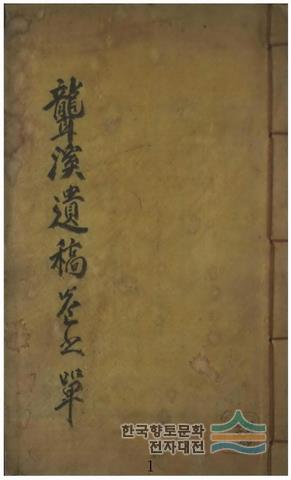 聾溪遺稿卷之單
한국향토문화
전자대전
1